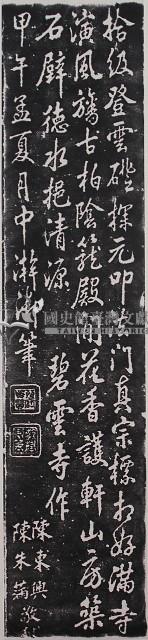 拾級登雲磴探元叩門真宗標相好滿寺
演風旛古柏陰籠殿閒花香護軒山房築
石壁德水挹清源 碧雲寺作
甲午孟夏月中澣御筆
陳東興
陳朱
敬
國史館臺灣文獻館
TAIWAN HISTORICA